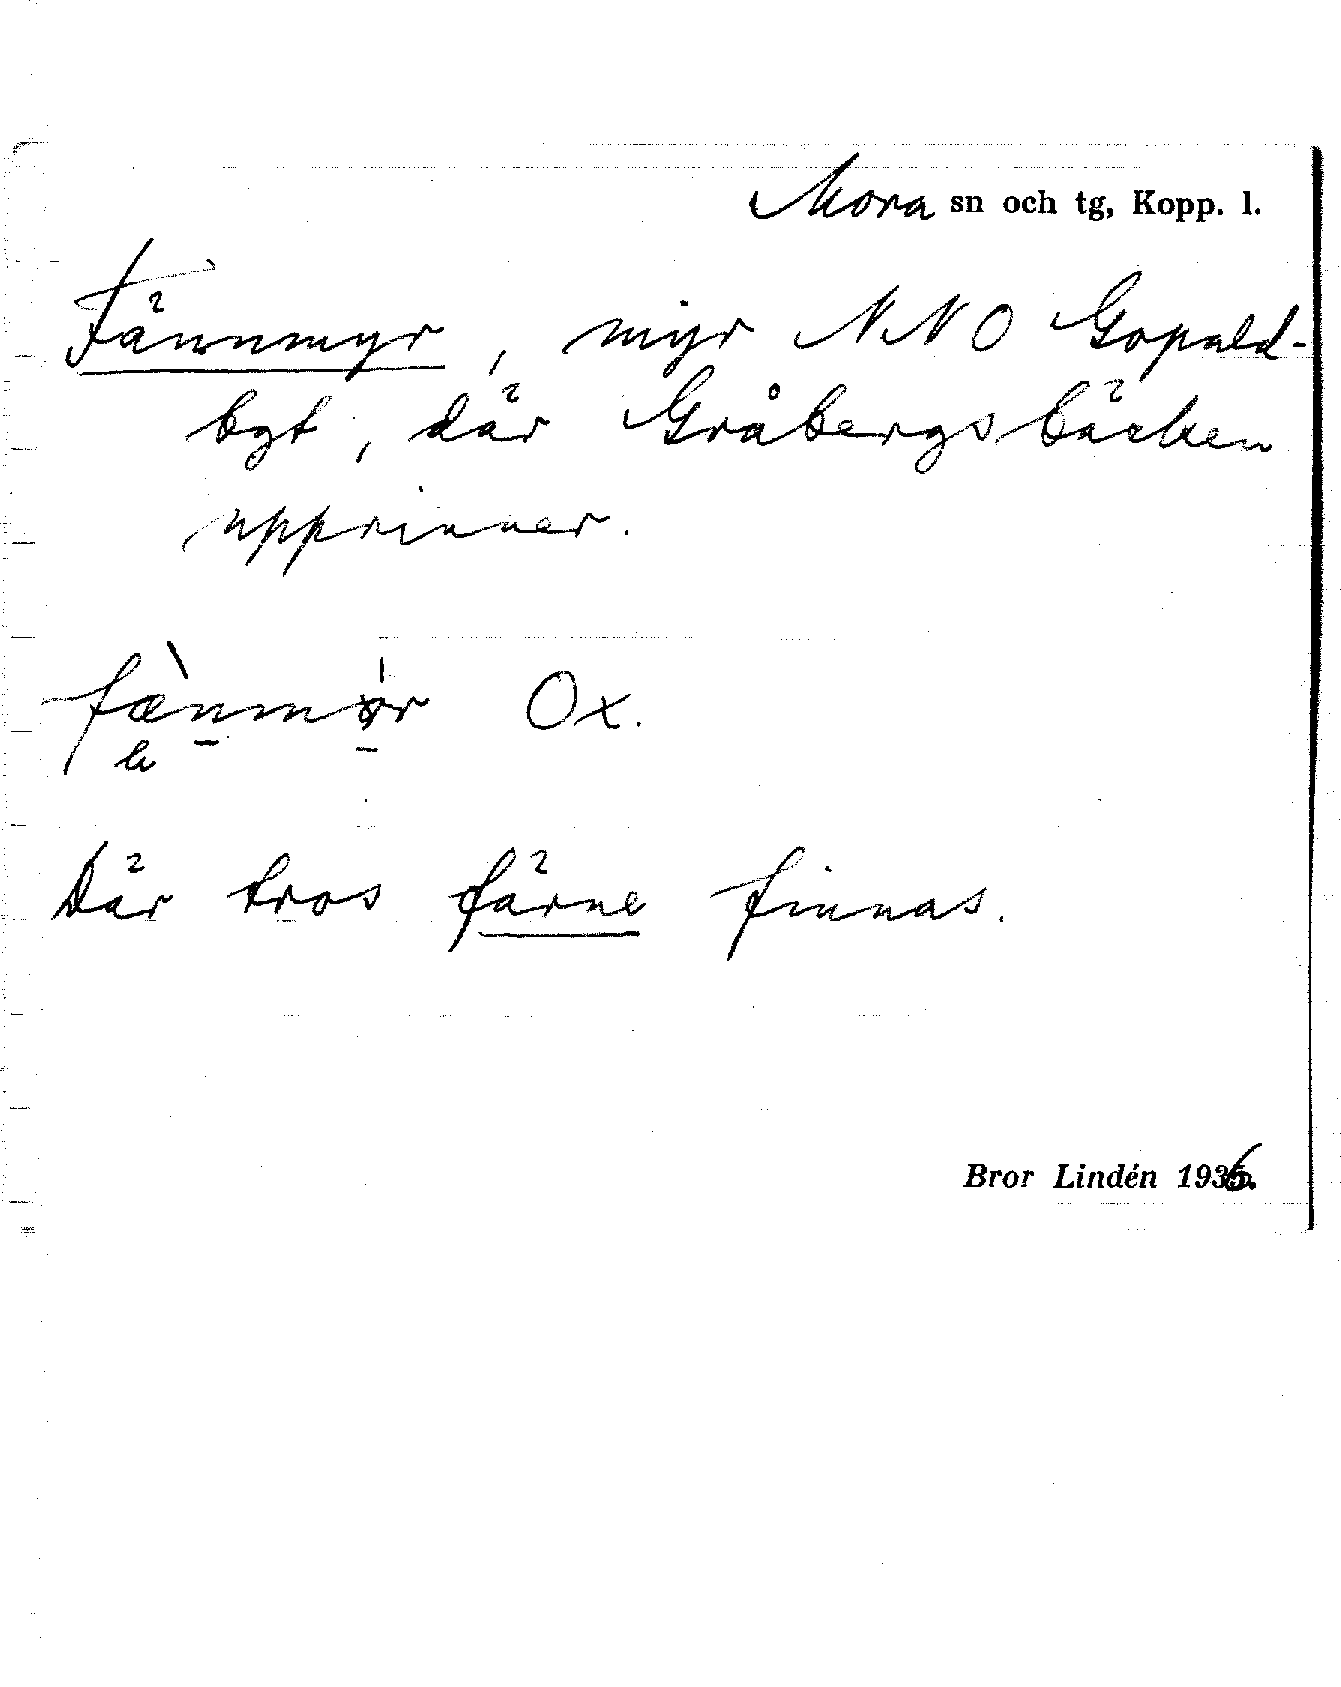 Mora sn och tg, Kopp. l.
Fännmyr, myr NNO Gopald-
bgt, där Gråbergsbäcken
upprinner.
Ox.
Där tros färne finnas.
Bror Lindén 1936.